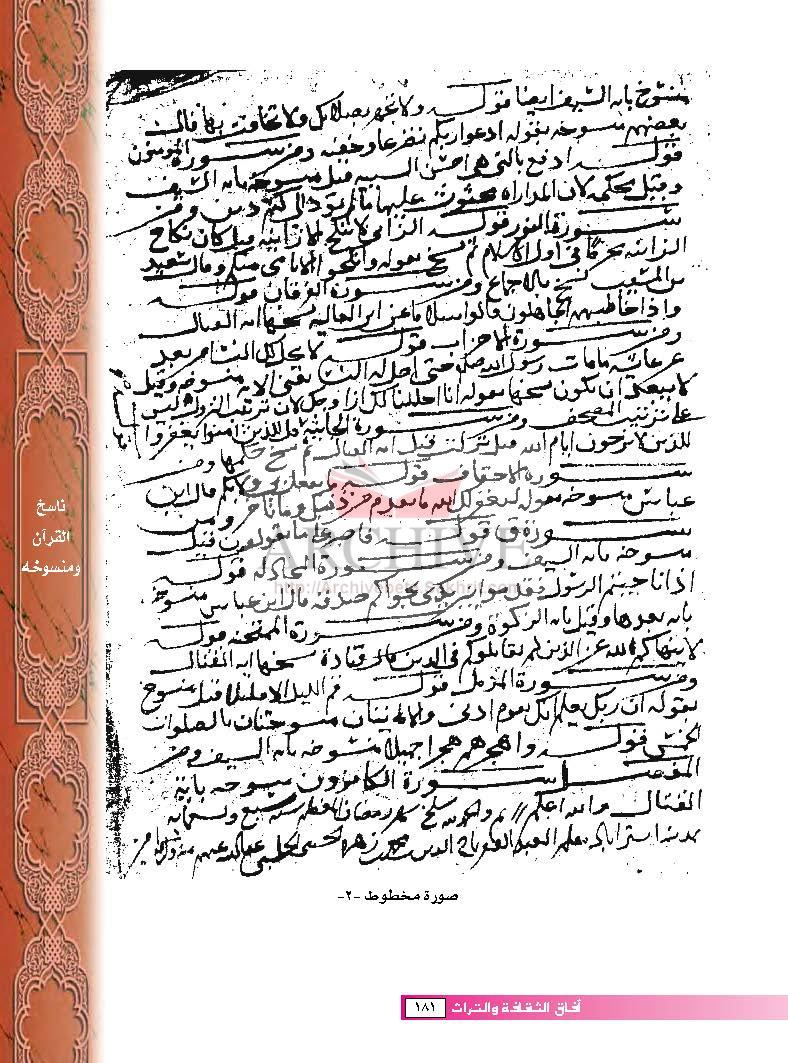 منسوخ بايه السيف ايضا قوله ولا تجهر بصلاتك ولا تخافت بها قالت
بعضهم منسوخه بقوله ادعوا ربكم تضرعا وخفيه ومن سورة المومنون
قوله ادفع بالتي هي احسن السييه قيل منسوخه بايه السيف
وقيل محكمه لان المداراه محثوث عليها ما لم تود الى دين ومن
سورة النور قوله الزاني لا ينكح الا زانيه قيل كان نكاح
الزانيه محرما في اول الاسلام ثم نسخ بقوله وانكحوا الايامى منكم وقال سعيد
بن المسيب نسخ بالاجماع ومن سورة الفرقان قوله
واذا خاطبهم الجاهلون قالوا سلاما عن ابي العاليه نسخها ايه القتال
ومن سورة الاحزاب قوله لا يحل لك النسا من بعد
عن عايشه ما مات رسول الله حتى احل له النسا يعني الايه منسوخه وقيل
لا يبعد ان يكون نسخها بقوله انا احللنا لك ازواجك لان ترتيب النزول ليس
على ترتيب المصحف ومن سورة الجاثية قل للذين امنوا يغفروا
للذين لا يرجون ايام الله قيل نزلت قبل ايه القتال ثم نسخ حكمها ومن
سورة الاحقاف قوله ما يفعل بي ولا بكم قال ابن
عباس منسوخه بقوله ليغفر لك الله ما تقدم من ذنبك وما تاخر ومن
سورة ق قوله فاصبر على ما يقولون قيل
منسوخه بايه السيف ومن سورة المجادله قوله
اذا ناجيتم الرسول فقدموا بين يدي نجواكم صدقه قال ابن عباس منسوخه
بايه بعدها وقيل بايه الزكوة ومن سورة الممتحنه قوله
لا ينهاكم الله عن الذين لم يقاتلوكم في الدين قال قتادة نسخها ايه القتال
ومن سورة المزمل قوله قم الليل الا قليلا قيل منسوخ
بقوله ان ربك يعلم انك تقوم ادنى والايتان منسوختان بالصلوات
الخمس قوله واهجرهم هجرا جميلا منسوخه بايه السيف ومن
المفصل سورة الكافرون منسوخه باية
القتال والله اعلم تم سلخ شهر رمضان سنة سبع
بقلم العبد زهره الحسيني الحلبي
ناسخ
القرآن
ومنسوخه
ARCHIVE
صورة مخطوط -٢-
آفاق الثقافة والتراث ١٨١